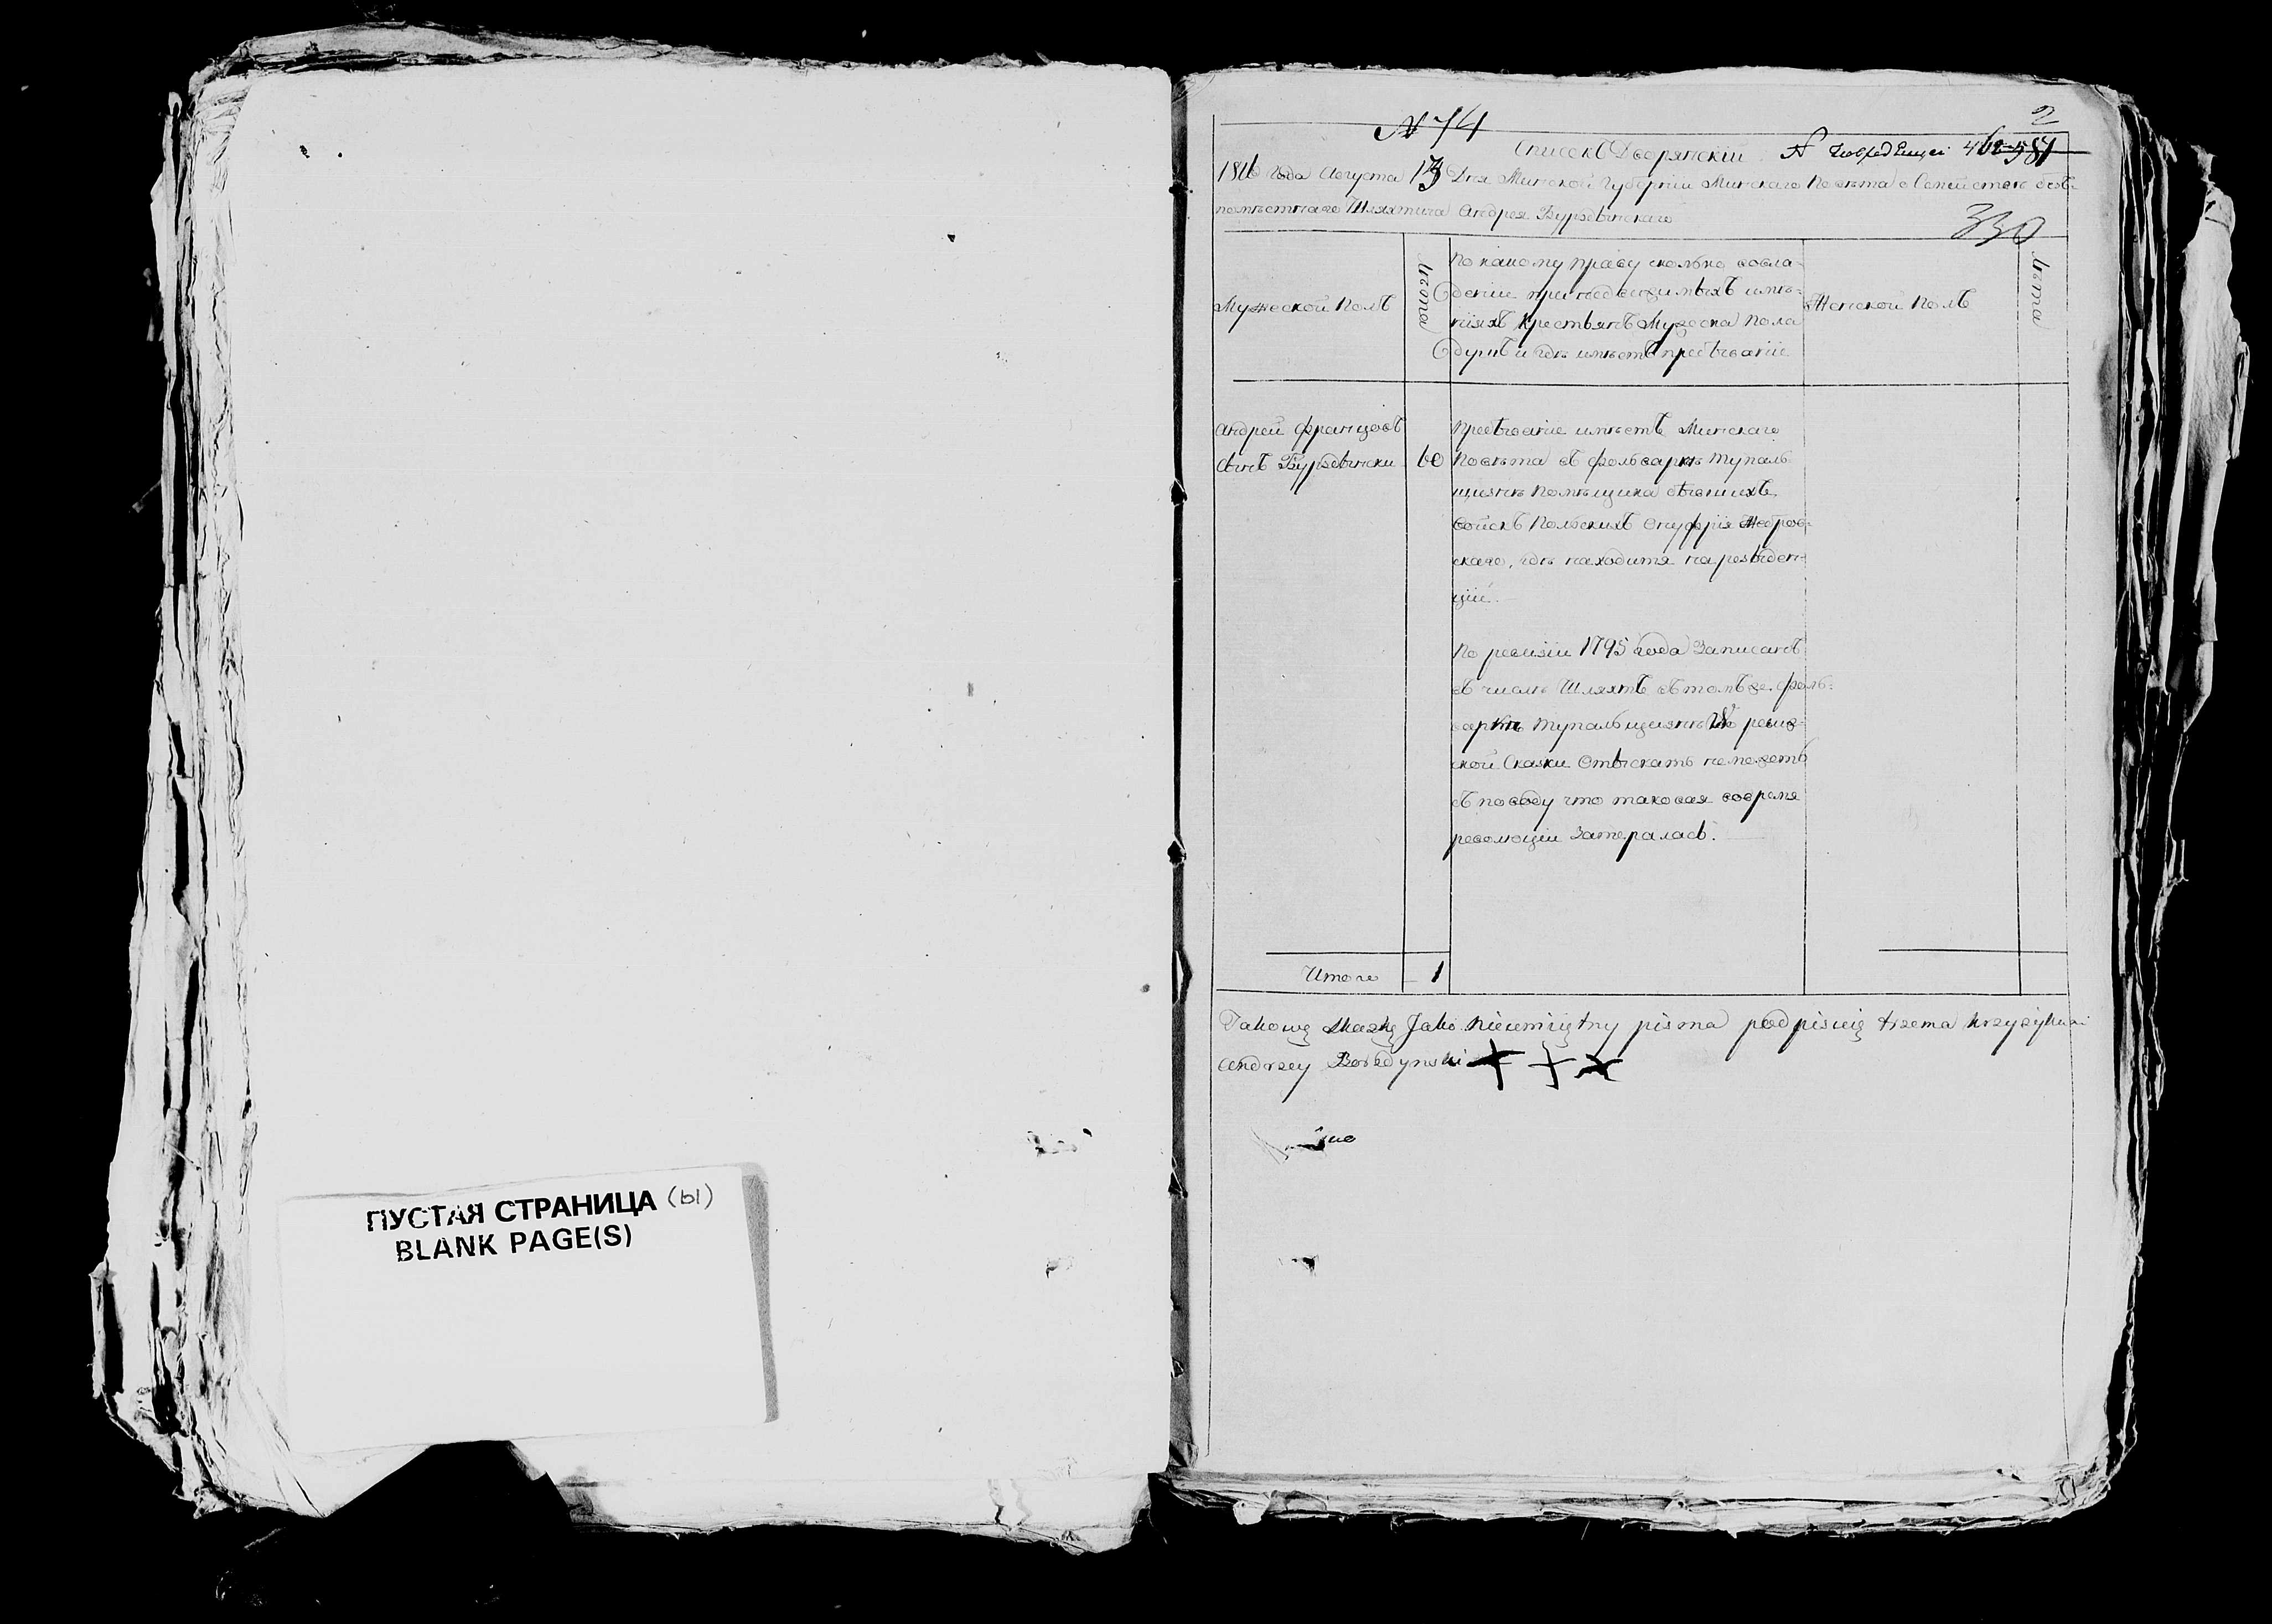 ПУСТАЯ СТРАНИЦА (ы)
BLANK PAGE(S)
2
N 74
Списокъ Дворянскiй N
1816 года Августа 13 Дня Минской Губернiи Минскаго Повѣта о Семействѣ безъ-
помѣстнаго Шляхтича Андрея Бурздынскаго
330
Мужеской Полъ
Лѣта
По какому праву сколько во вла-
денiи при недвижимыхъ имѣ-
нiяхъ Крестьянъ Мужеска Пола
Душъ и гдѣ имѣетъ пребыванiе
Женской Полъ
Лѣта
Андрей Францовъ
Сынъ Бурздынски
60
Пребыванiе имѣетъ Минскаго
Повѣта въ фольваркѣ Тупаль-
щизнѣ Помѣщика бывшихъ
войскъ Польскихъ Онуфрiя
скаго, гдѣ находится на резыден-
цiи.
По ревизiи 1795 года Записанъ
въ числѣ Шляхтъ въ томъ же фоль-
варкѣ Тупальщизнѣ но ревиз-
ской Сказки Отыскать неможетъ
съ поводу что таковая вовремя
революцiи Затералась.
Итого 1
Takowę skazkę Jako nieumiętny pisma podpisuię trzema krzyżykami
Andrzey Borzdynski + + ×